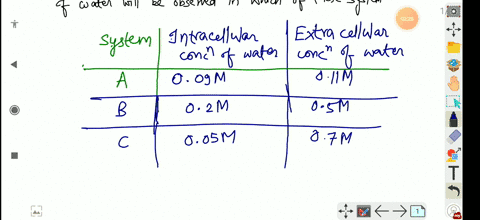 of water will be observed in which of
System Intracellular concⁿ of water Extracellular concⁿ of water
A 0.09M 0.11M
B 0.2M 0.5M
C 0.05M 0.7M
1